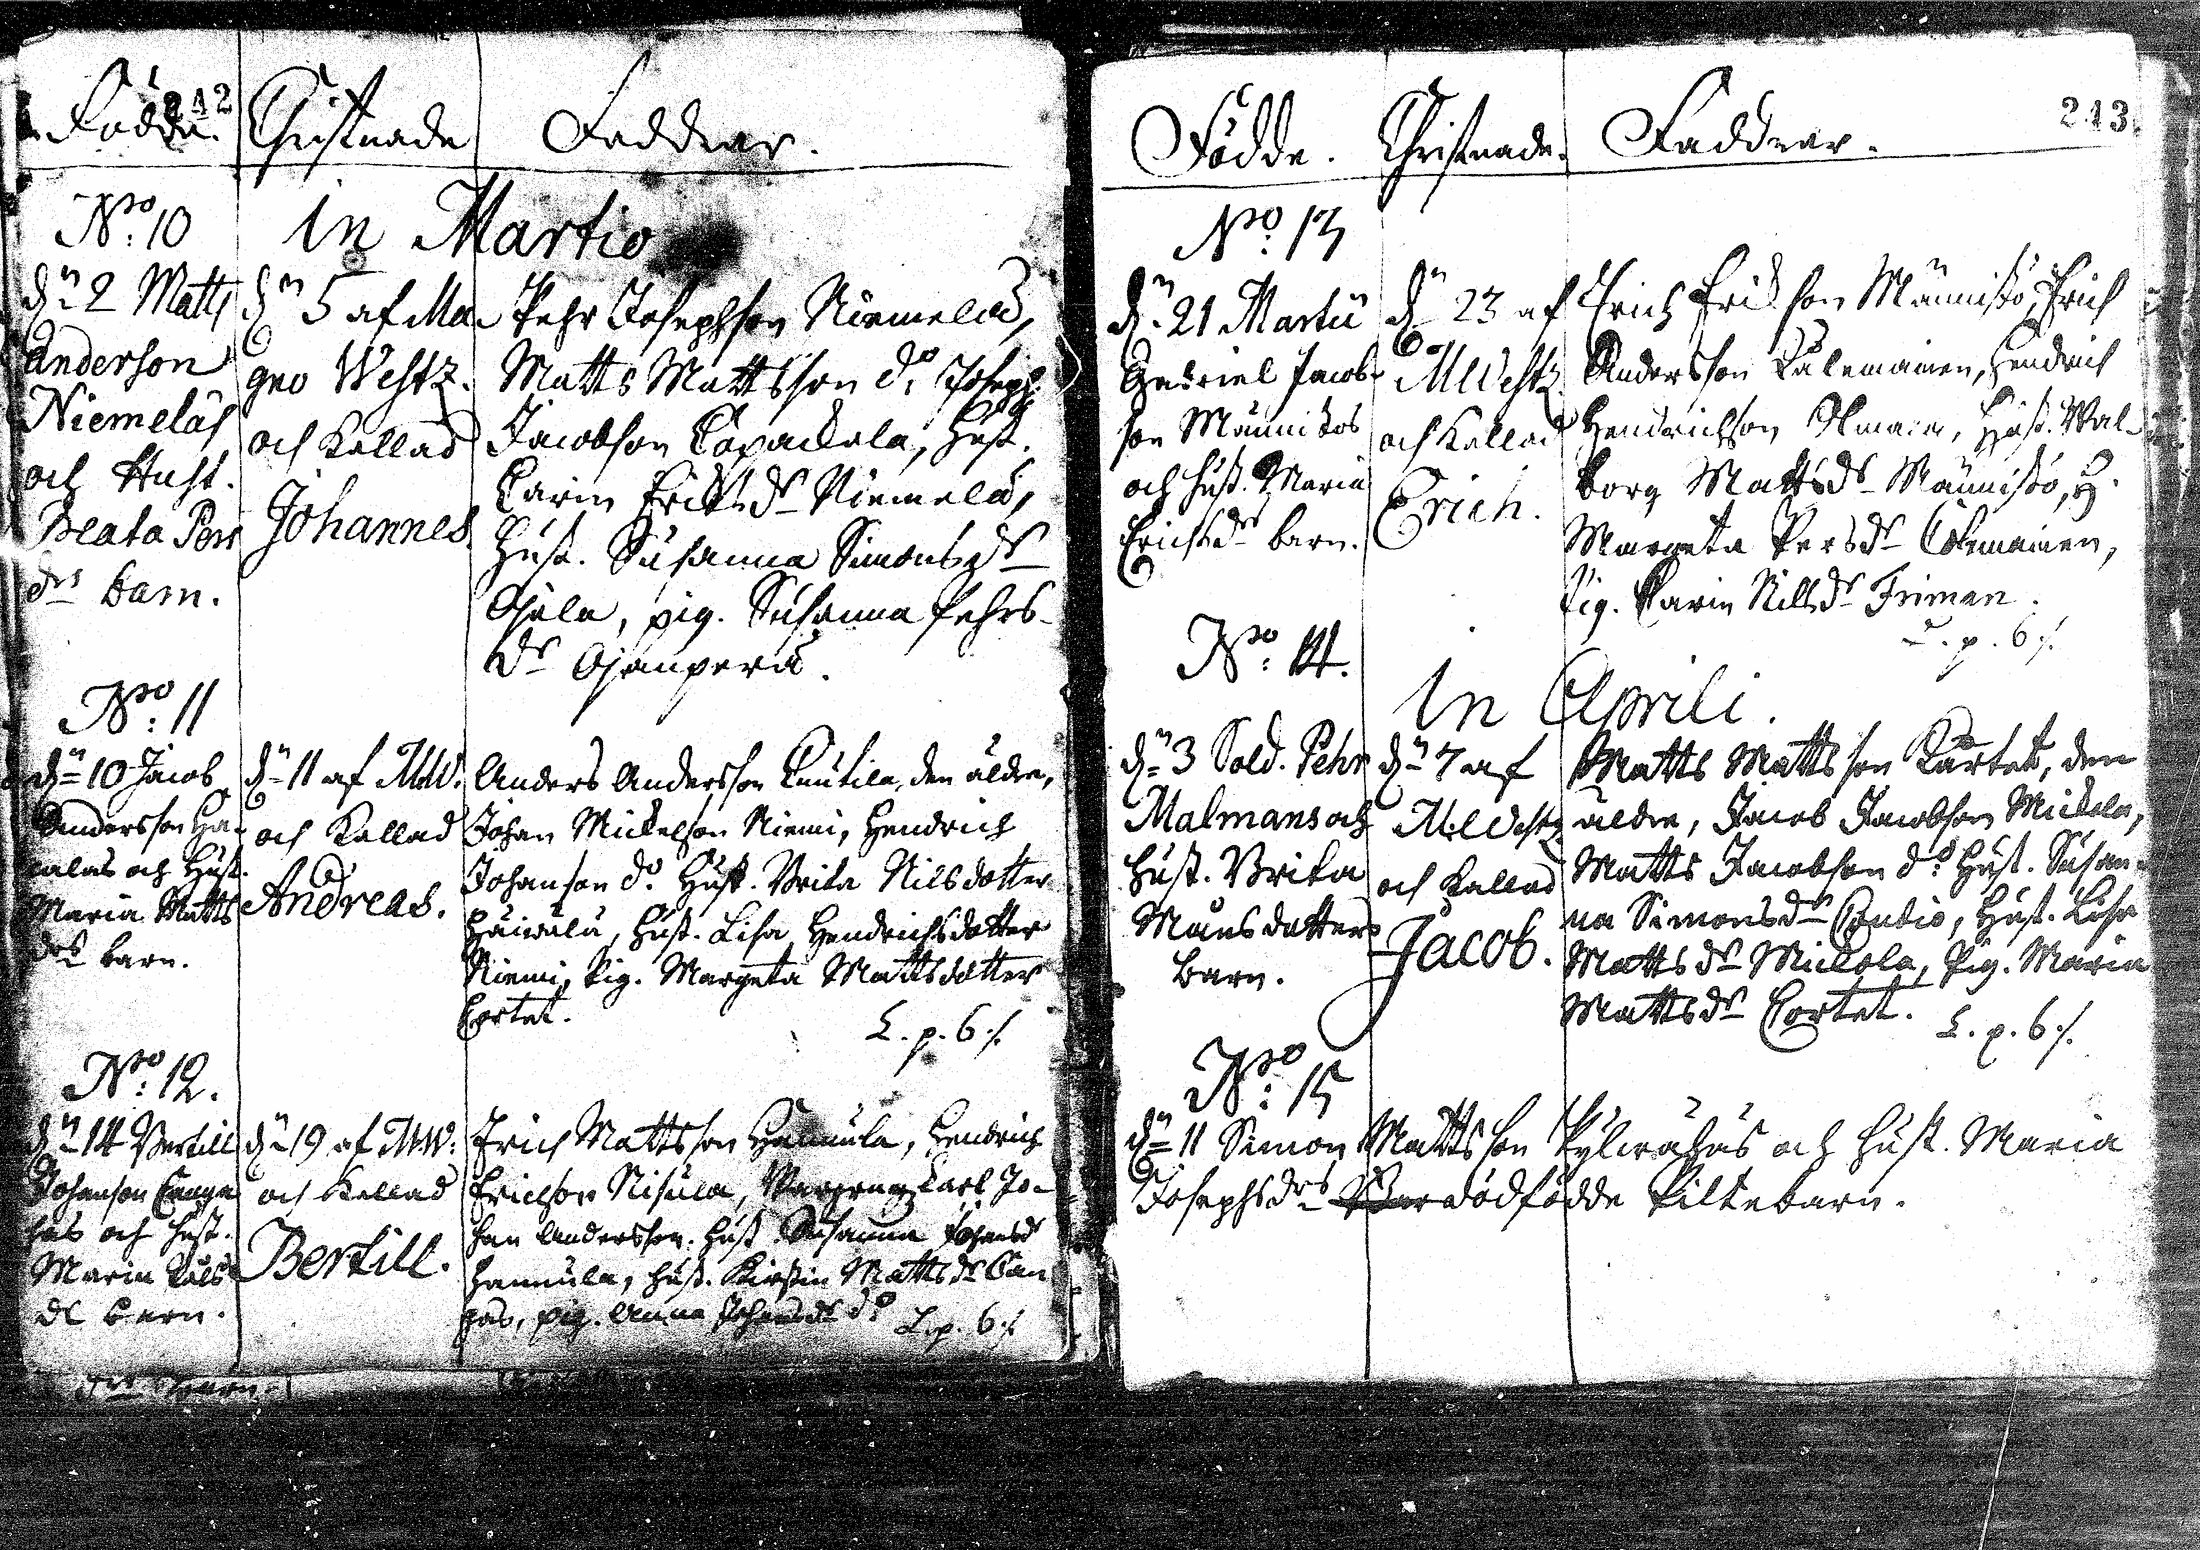 242
Födde. Christnade Faddrar.
No: 10
dn 2 Matts
Anderson
Niemeläs
och Hust.
Beata Pers
drs barn.
in Martio
dn 5 af Ma-
gno Westz.
och Kallad
Johannes.
Pehr Josephson Niemelä,
Matts Mattsson do Joseph
Jacobson Capackala, Hust.
Carin Ericksdr Niemelä,
Hust. Susanna Simonsdr
Ojala, pig. Susanna Pehrs-
dr Ojanperä.
No: 11
dn 10 Jacob
Andersson
och Hust.
Maria Matts
drs barn.
dn 11 af M.W.
och Kallad
Andreas.
Anders Andersson Cautila, den äldre,
Johan Mickelson Niemi, Hendrich
Johanson do Hust. Brita Nilsdotter
Hust. Lisa Hendrichsdotter
Niemi, Pig. Margeta Mattsdotter
Cortet.
L. p. 6 ./.
No: 12.
dn 14 Bertill
Johanson Canga
has och Hust.
Maria
dr barn.
dn 19 af M.W.
och Kallad
Bertill.
Erich Mattsson Hannula, Hendrich
Erichson Nisula, Carl Jo-
han Andersson. Hust Susanna Johansdr
Hannula, Hust. Kirstin Mattsdr Can
gas, pig. Anna Johansdr do
L. p. 6 ./.
243.
Födde. Christnade. Faddrar.
No: 13
dn 21 Martii
Gabriel Jacob-
son Männikös
och Hust. Maria
Erichsdrs barn.
dn 23 af
M Westz
och Kallad
Erich.
Erich Erikson Männikö, Erich
Andersson Hendrich
Hendrichson Hust. Wal-
borg Mattsdr Männikö, H.
Margeta Persdr
Pig. Carin Nillsdr Friman.
L. p. 6 ./.
No: 14.
in Aprili.
dn 3 Sold. Pehr
Malmans och
Hust. Brita
Månsdotters
barn.
dn 7 af
M. Westz
och Kallad
Jacob.
Matts Mattsson Kartet, den
äldre, Jacob Jacobson Mickola,
Matts Jacobson do Hust. Susan-
na Simonsdr Hust. Lisa
Mattsdr Mickola, Pig. Maria
Mattsdr Cortet.
L. p. 6 ./.
No: 15
dn 11 Simon Mattsson Pylwähäs och Hust. Maria
Josephsdrs dödfödde Piltebarn.